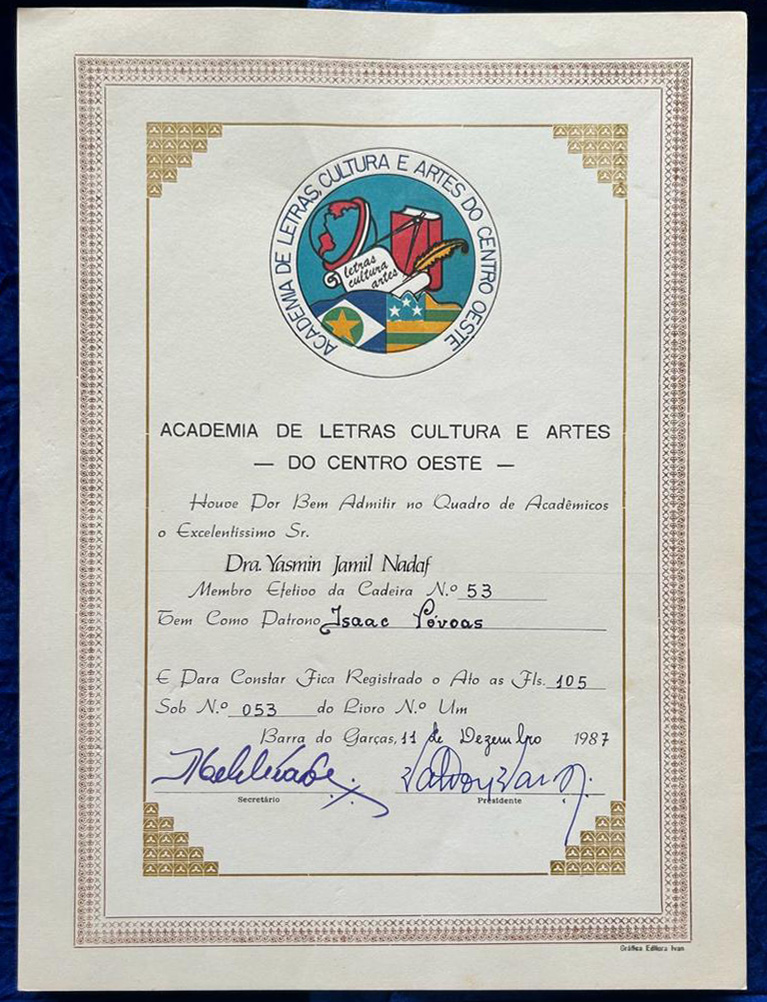 ACADEMIA DE LETRAS, CULTURA E ARTES DO CENTRO OESTE
letras
cultura
artes
ACADEMIA DE LETRAS CULTURA E ARTES
— DO CENTRO OESTE —
Houve Por Bem Admitir no Quadro de Acadêmicos
o Excelentissimo Sr.
Dra. Yasmin Jamil Nadaf
Membro Efetivo da Cadeira N.º 53
Tem Como Patrono Isaac Póvoas
E Para Constar Fica Registrado o Ato as Fls. 105
Sob N.º 053 do Livro N.º Um
Barra do Garças, 11 de Dezembro 1987
Secretário
Presidente
Gráfica Editora Ivan